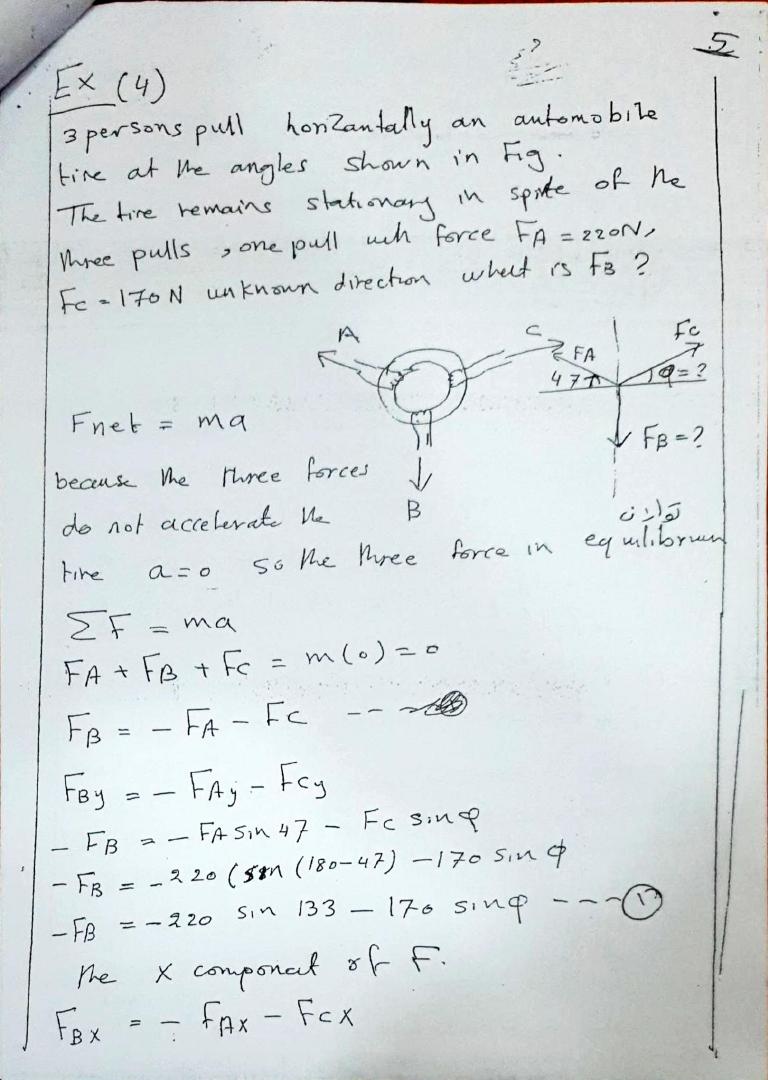 5
Ex (4)
3 persons pull honzantally an automobile
tire at the angles shown in Fig.
The tire remains stationary in spite of the
three pulls, one pull with force FA = 220N,
Fc = 170 N unknown direction what is FB ?
A
C
FA
Fc
47
φ = ?
Fnet = ma
FB = ?
because the three forces
B
do not accelerate the
توازن
tire a=0 so the three force in equilibrium
ΣF = ma
FA + FB + Fc = m(0) = 0
FB = - FA - Fc ---
FBy = - FAy - Fcy
- FB = - FA sin 47 - Fc sin φ
- FB = -220 (sin (180-47) - 170 sin φ
- FB = -220 sin 133 - 170 sin φ --- 1
the x componat of F.
FBx = - FAx - Fcx